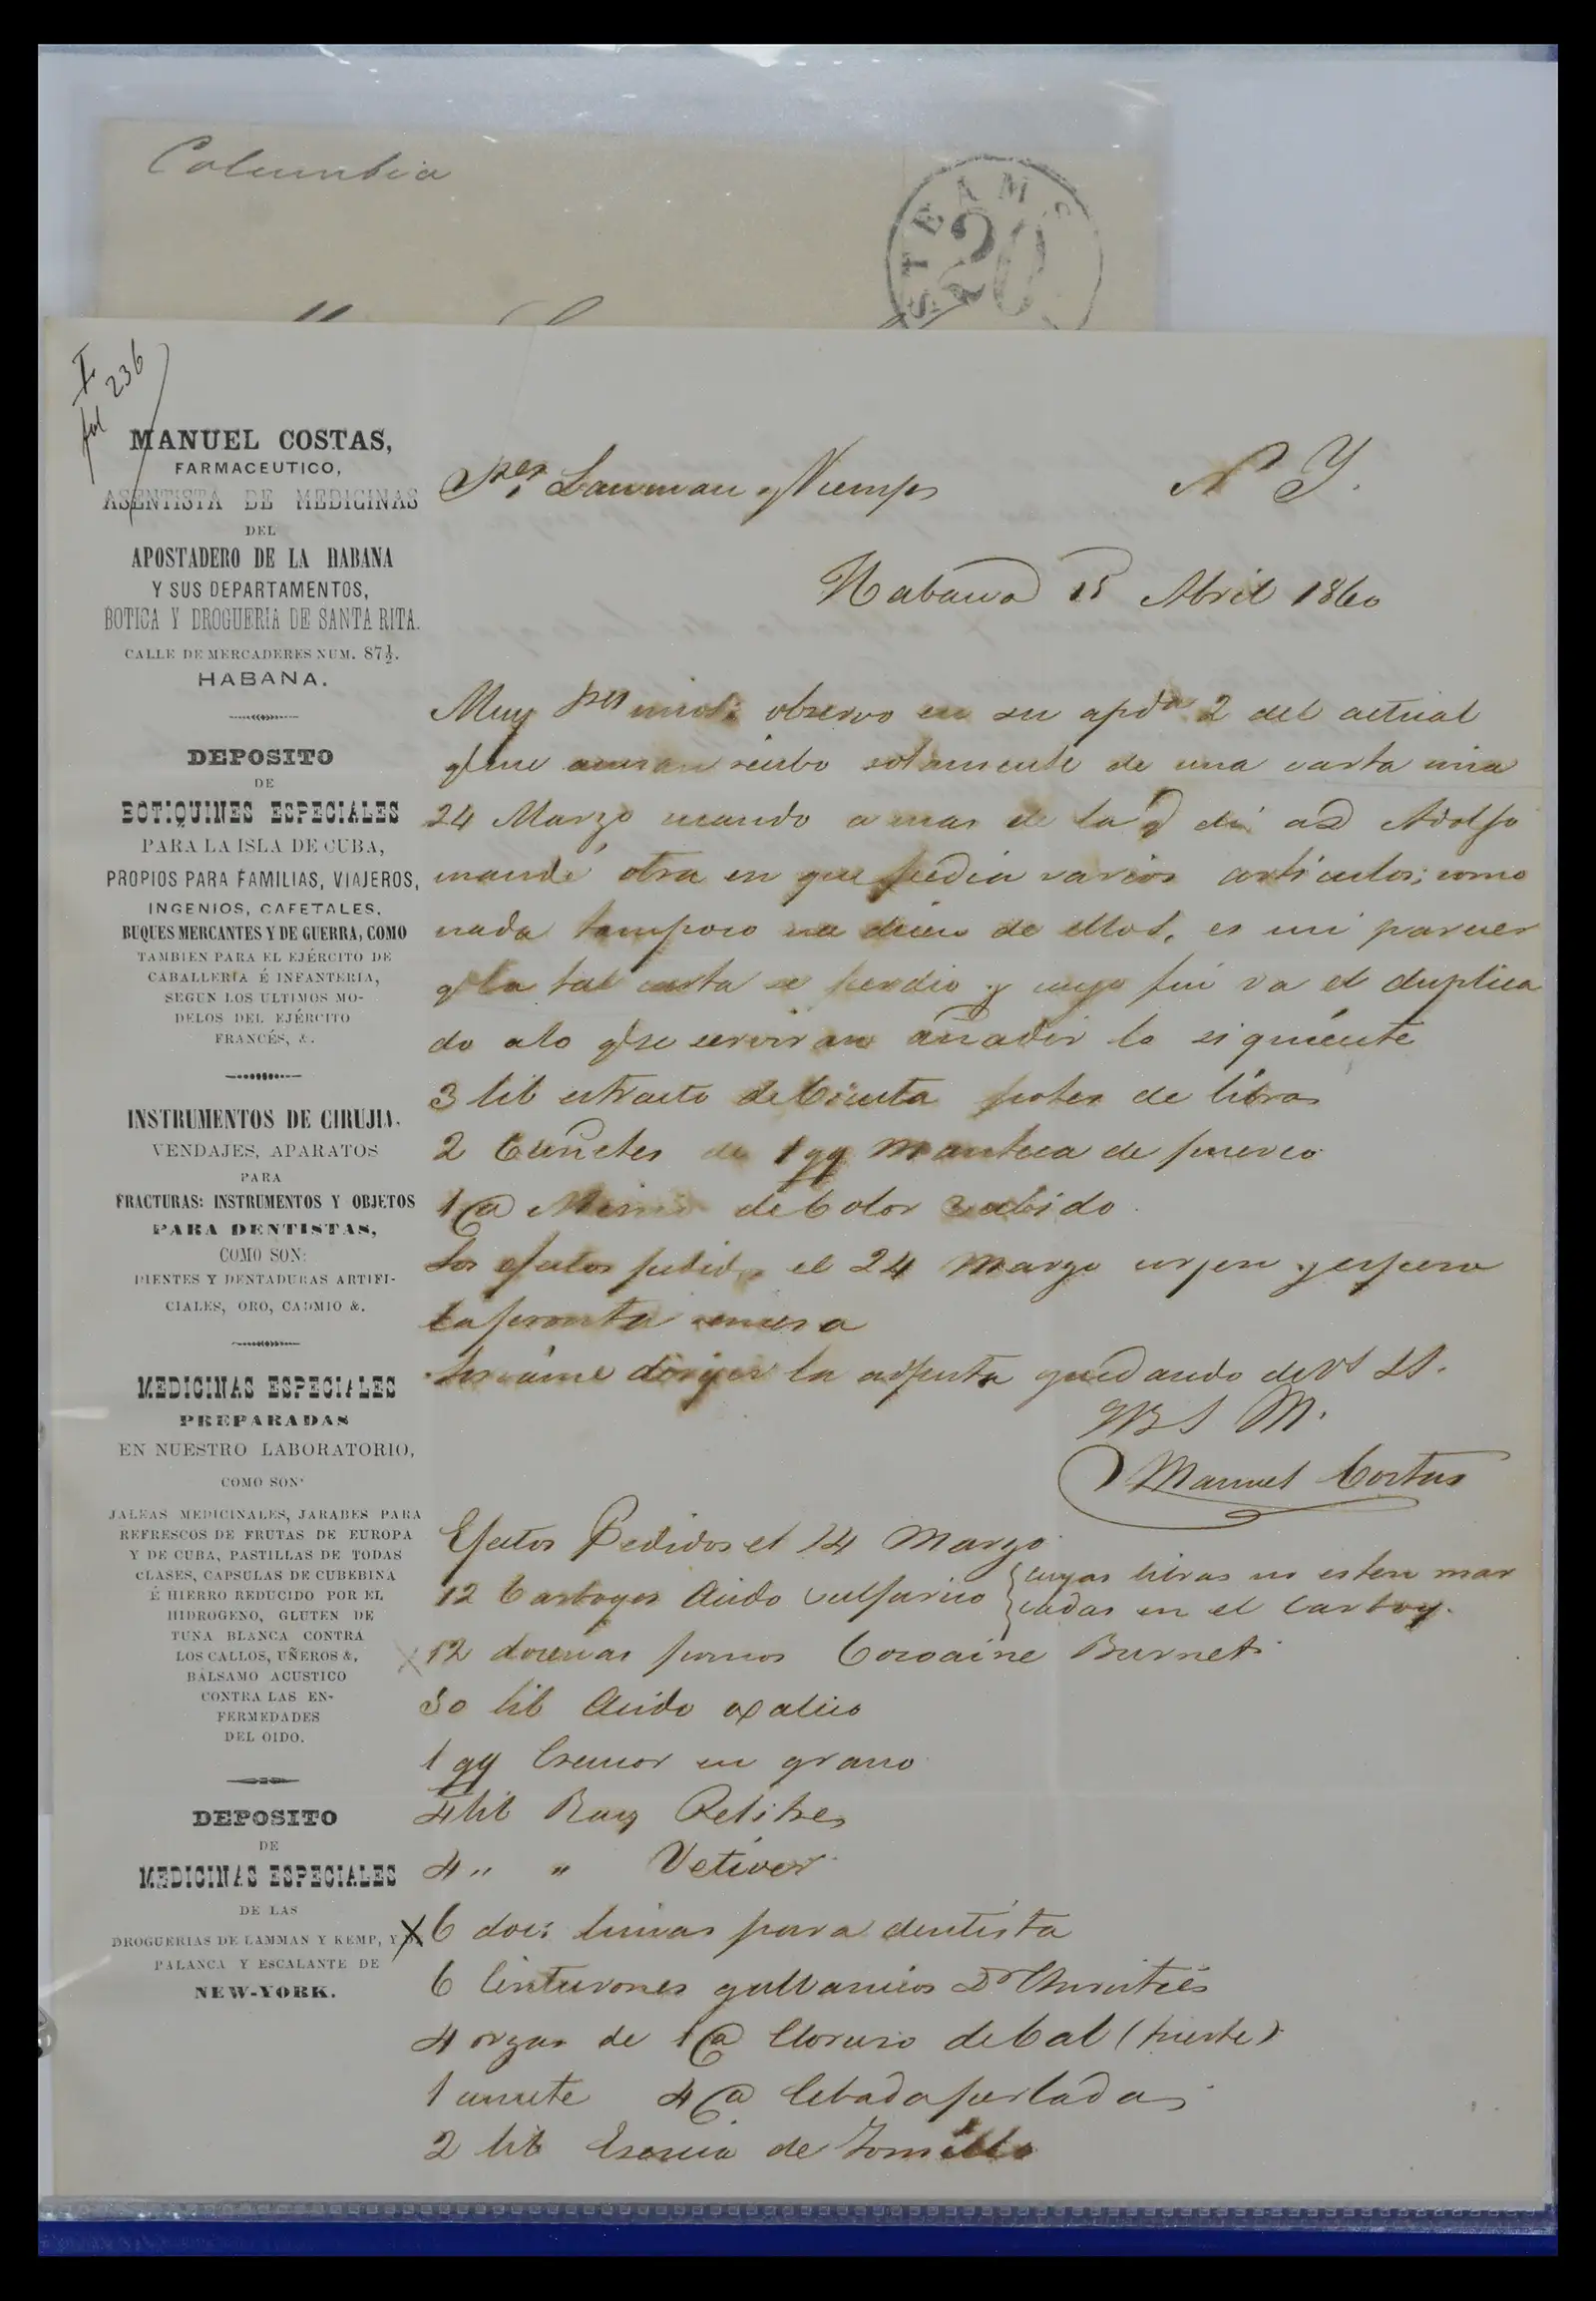 Columbia
STEAMS
20
I.
fol 236
MANUEL COSTAS,
FARMACEUTICO,
ASENTISTA DE MEDICINAS
DEL
APOSTADERO DE LA HABANA
Y SUS DEPARTAMENTOS,
BOTICA Y DROGUERIA DE SANTA RITA.
CALLE DE MERCADERES NUM. 87½.
HABANA.
DEPOSITO
DE
BOTIQUINES ESPECIALES
PARA LA ISLA DE CUBA,
PROPIOS PARA FAMILIAS, VIAJEROS,
INGENIOS, CAFETALES,
BUQUES MERCANTES Y DE GUERRA, COMO
TAMBIEN PARA EL EJÉRCITO DE
CABALLERIA É INFANTERIA,
SEGUN LOS ULTIMOS MO-
DELOS DEL EJÉRCITO
FRANCÉS, &.
INSTRUMENTOS DE CIRUJIA.
VENDAJES, APARATOS
PARA
FRACTURAS: INSTRUMENTOS Y OBJETOS
PARA DENTISTAS,
COMO SON:
DIENTES Y DENTADURAS ARTIFI-
CIALES, ORO, CADMIO &.
MEDICINAS ESPECIALES
PREPARADAS
EN NUESTRO LABORATORIO,
COMO SON:
JALEAS MEDICINALES, JARABES PARA
REFRESCOS DE FRUTAS DE EUROPA
Y DE CUBA, PASTILLAS DE TODAS
CLASES, CAPSULAS DE CUBEBINA
É HIERRO REDUCIDO POR EL
HIDROGENO, GLUTEN DE
TUNA BLANCA CONTRA
LOS CALLOS, UÑEROS &,
BALSAMO ACUSTICO
CONTRA LAS EN-
FERMEDADES
DEL OIDO.
DEPOSITO
DE
MEDICINAS ESPECIALES
DE LAS
DROGUERIAS DE LAMMAN Y KEMP, Y DE
PALANCA Y ESCALANTE DE
NEW-YORK.
Sres. Lanman y Kemp N Y.
Habana 15 Abril 1860
Muy Sres mios: observo en su apda 2 del actual
q me acusan recibo solamente de una carta mia
24 Marzo cuando a mas de la q di a Dn Adolfo
mandé otra en que pedia varios articulos; como
nada tampoco me dicen de ellos, es mi parecer
q la tal carta se perdio y cuyo fin va el duplica
do a lo q se serviran añadir lo siguiente
3 lib estracto de Cicuta potes de libra
2 Cuñetes de 1 qq Manteca de puerco
1 @ de Color subido
Los efectos pedidos el 24 Marzo urjen y espero
la pronta remesa
Sirvame dirijir la adjunta quedando de Vs SS.
QBSM.
Manuel Costas
Efectos Pedidos el 24 Marzo
12 Carboyes Acido sulfurico cuyas libras no esten mar
cadas en el Carboy.
X 12 docenas pomos Cocoaine Burnets
30 lib Acido oxalico
1 qq Cremor en grano
4 lib Raiz Pelitre
4 " " Vetiver
X 6 doc: limas para dentista
6 Cinturones galvanicos Dr Christies
4 orzas de 1 @ Cloruro de Cal (fuerte)
1 cuñete 4 @ Cebada perlada
2 lib Esencia de Tomillo